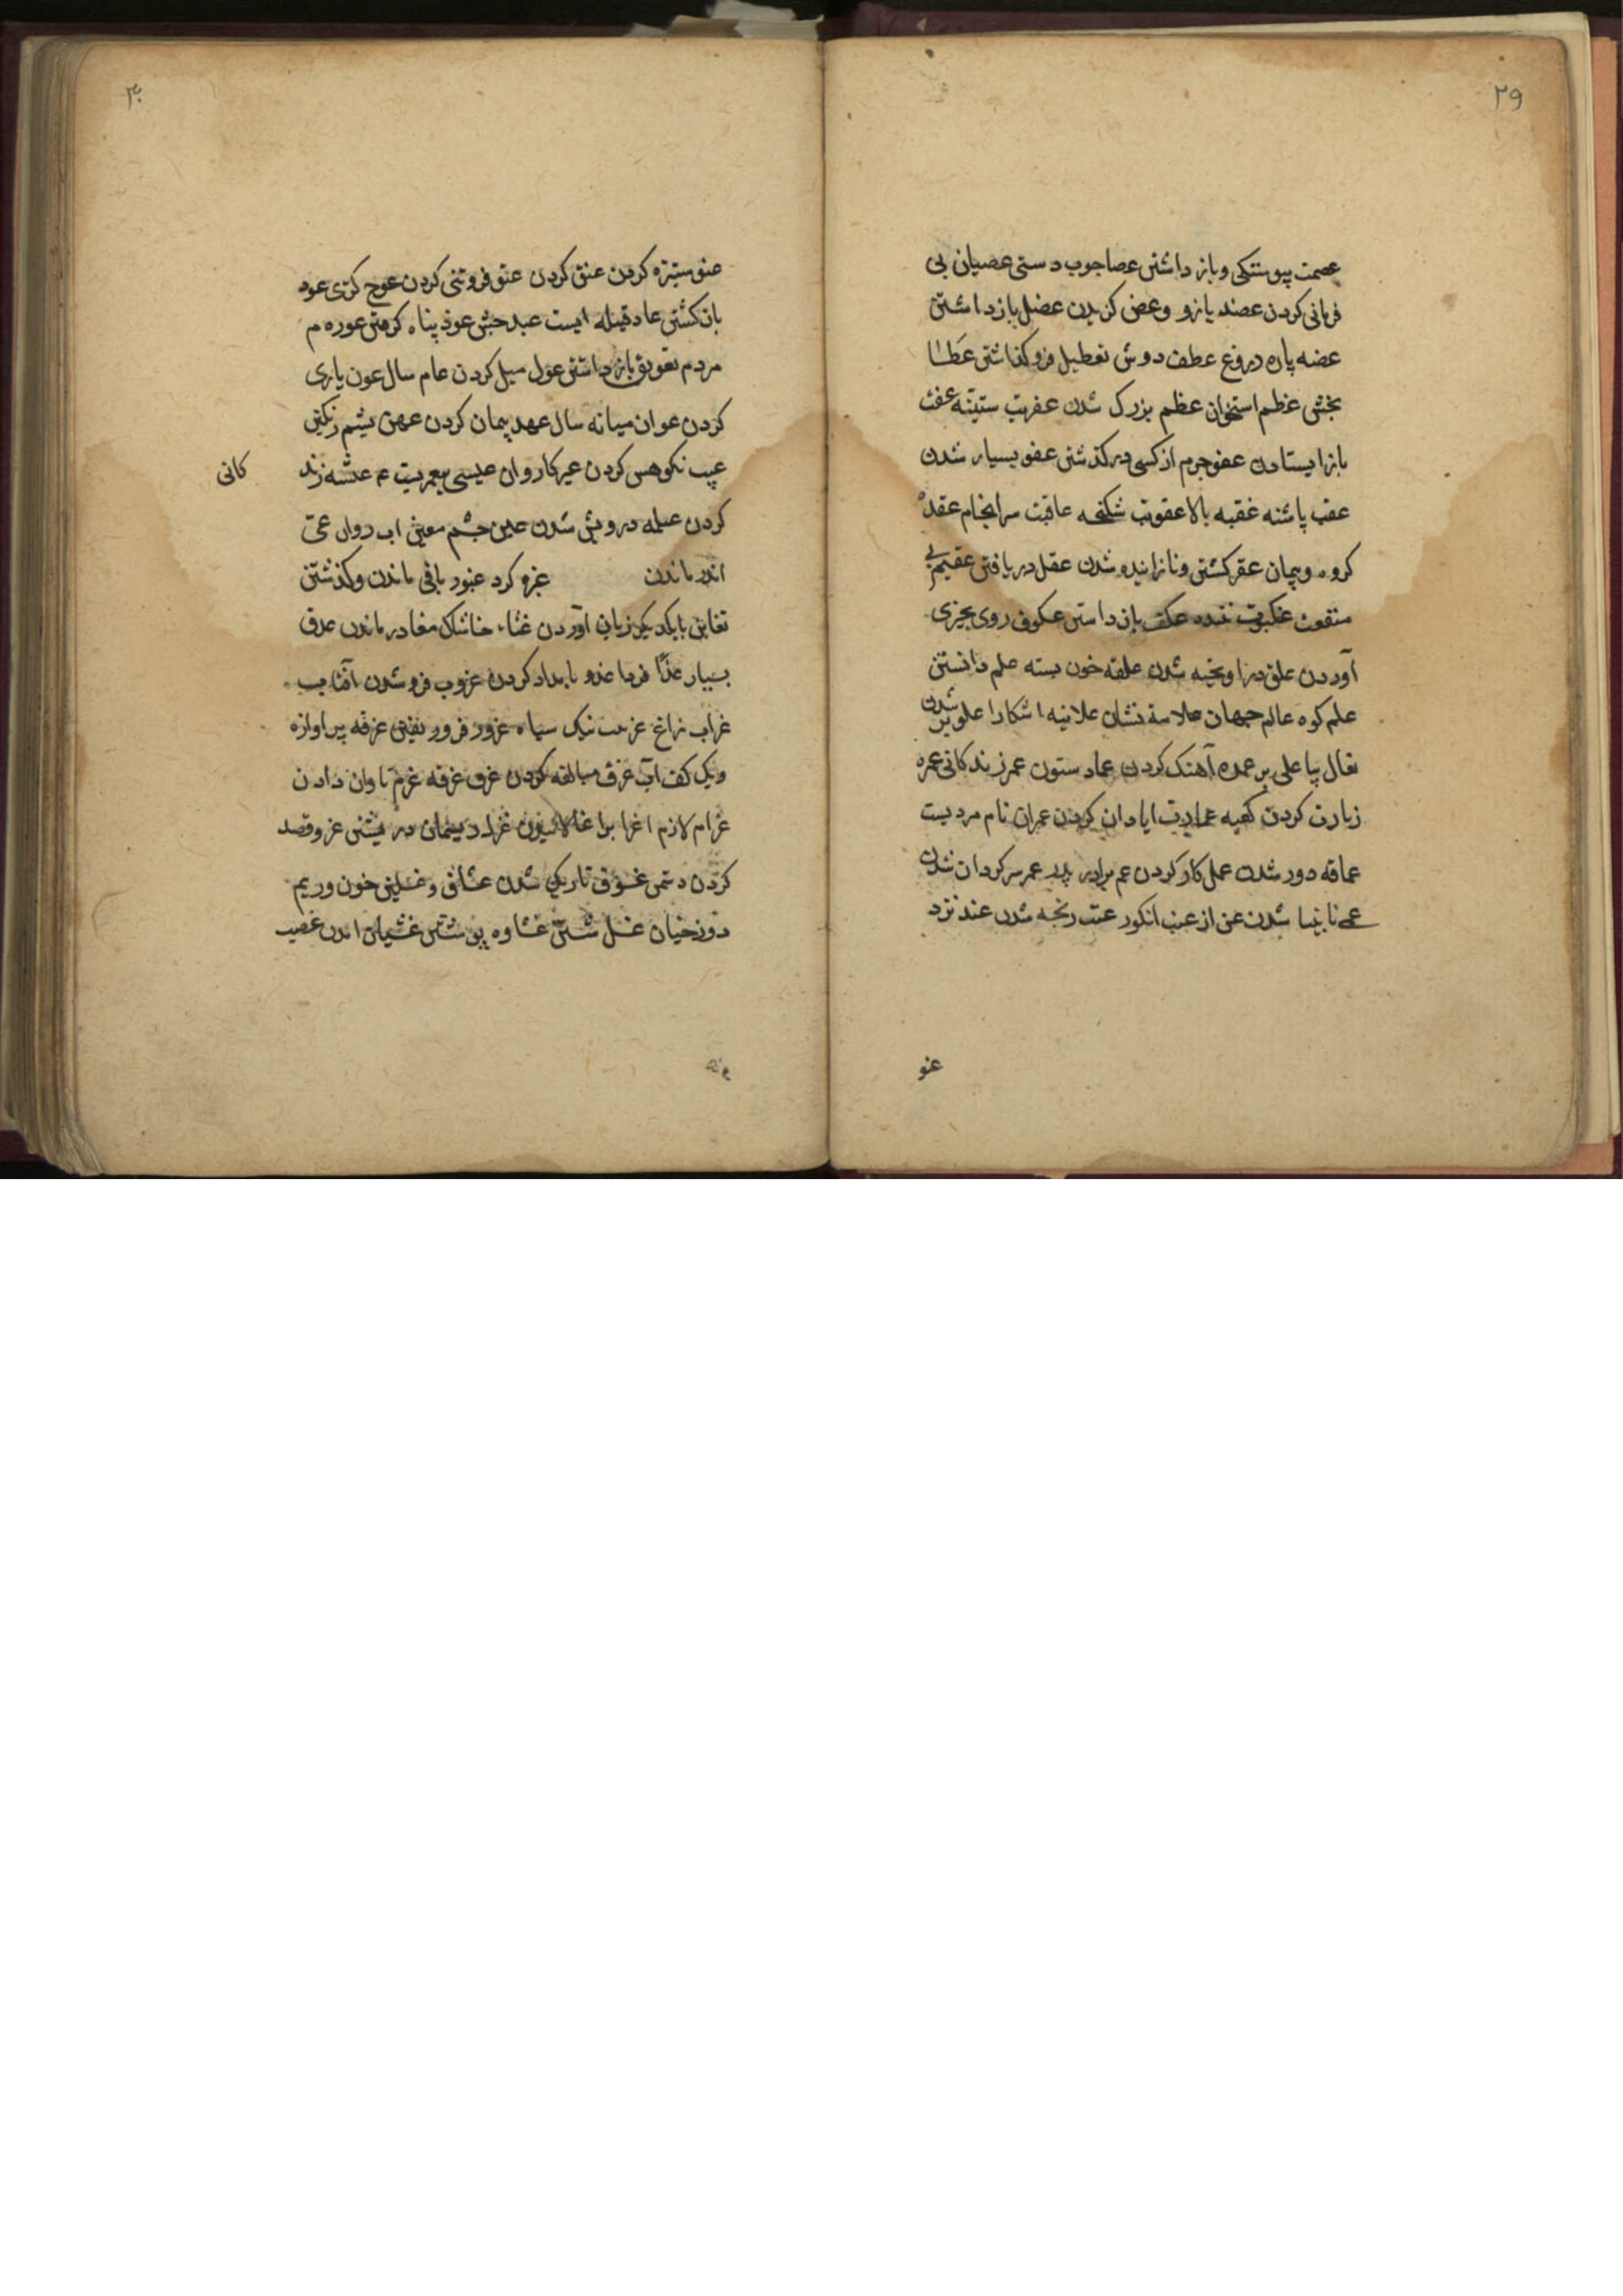 ۲۹
عصمت پیوستکی و باز داشتن عصا جوب دستی عصیان بی
فرمانی کردن عضد بازو و عض کزیدن عضل باز داشتن
عضه پاره دروغ عطف دوش تعطیل فرو کذاشتن عطا
بخشی عظم استخوان عظم بزرک شدن عفریت ستینه عفت
باز ایستادن عفو جرم از کسی در کذشتن عفو بسیار شدن
عقب پاشنه عقبه بالا عقوبت شکنجه عاقبت سرانجام عقده
کروه و پیمان عقر کشتن و نازاینده شدن عقل دریافتن عقیم بی
منفعت عنکبوت تننده عکف باز داشتن عکوف روی بچیزی
آوردن علق در اویخته شدن علقه خون بسته علم دانستن
علم کوه عالم جهان علامة نشان علانیه اشکارا علو بر شدن
تعال بیا علی بر عمده آهنک کردن عماد ستون عمر زندکانی عمره
زیارت کردن کعبه عمارت ابادان کردن عمران نام مردیست
عماقه دور شدن عمل کار کردن عم برادر پدر عمر سرکردان شدن
عمی نابینا شدن عن از عنب انکور عنت رنجه شدن عند نزد
عنو
۳۰
عنو ستیزه کردن عنق کردن عنو فروتنی کردن عوج کژی عود
باز کشتن عاد قبیله ایست عبد حبش عوذ پناه کرفتن عوره م
مردم تعویق باز داشتن عول میل کردن عام سال عون یاری
کردن عوان میانه سال عهد پیمان کردن عهن پشم رنکین
عیب نکوهس کردن عیر کاروان عیسی پیغمبریست ع عیشه زند
کانی
کردن عیله درویش شدن عین جشم معین اب روان عی
اندر ماندن غبره کرد غبور باقی ماندن و کذشتن
تغابن بایکدیکر زیان آوردن غثاء خاشاک مغادر ماندن غدق
بسیار غدًا فردا غدو بامداد کردن غروب فرو شدن آفتاب
غراب زاغ غربیب نیک سیاه غرور فریفتن غرفه پرواره
و یک کف آب غرق مبالغه کردن غرق غرقه غرم تاوان دادن
غرام لازم اغرا بر اغالانیدن غزل ریسمان رشتن غزو قصد
کردن دشمن غسوق تاریک شدن غساق و غسلین خون و ریم
دوزخیان غسل شستن غشاوه پوشش غشیان امدن غصب